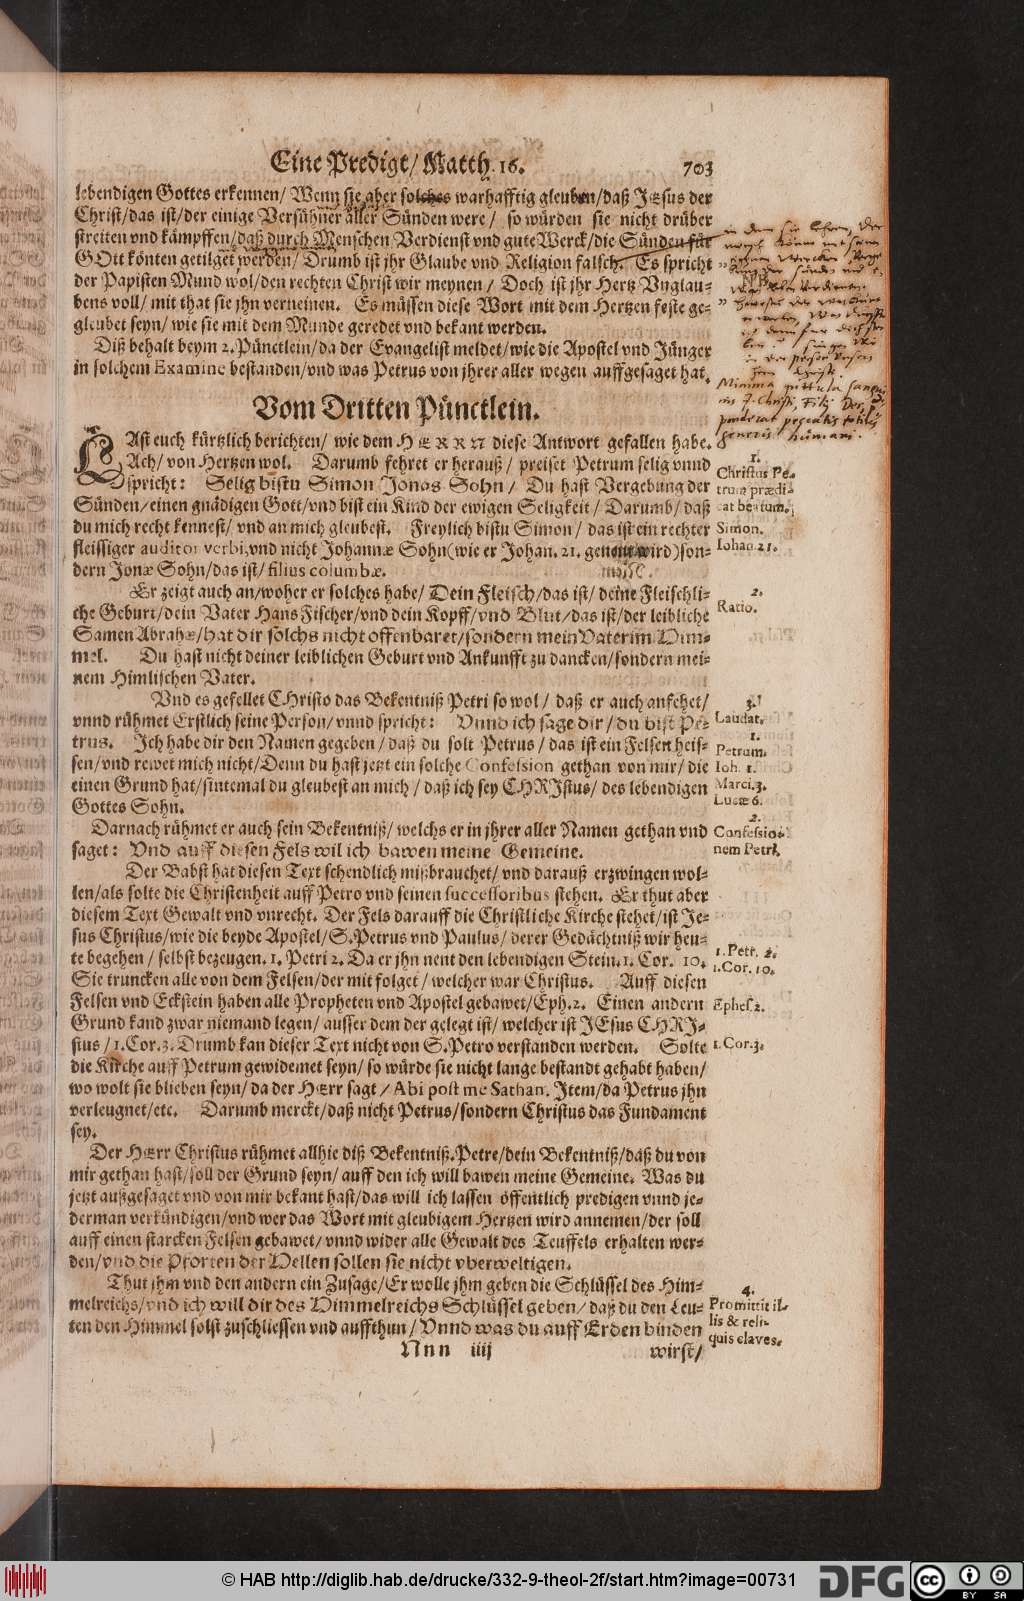 Eine Predigt/ Matth. 16. 703
lebendigen Gottes erkennen/ Wenn sie aber solches warhafftig gleuben/daß JEsus der
Christ/das ist/der einige Versühner aller Sünden were/ so würden sie nicht drüber
streiten vnd kämpffen/daß durch Menschen Verdienst vnd gute Werck/die Sünden für
GOtt könten getilget werden/ Drumb ist jhr Glaube vnd Religion falsch. Es spricht
der Papisten Mund wol/den rechten Christ wir meynen/ Doch ist jhr Hertz Vnglau-
bens voll/ mit that sie jhn verneinen. Es müssen diese Wort mit dem Hertzen feste ge-
gleubet seyn/ wie sie mit dem Munde geredet vnd bekant werden.
Diß behalt beym 2. Pünctlein/da der Evangelist meldet/wie die Apostel vnd Jünger
in solchem Examine bestanden/vnd was Petrus von jhrer aller wegen auffgesaget hat.
Minima guttula sangui
nis J. Christi, Filij Dei,
ponderat peccatis totius
generis humani.
Vom Dritten Pünctlein.
LAst euch kürtzlich berichten/ wie dem HERRN diese Antwort gefallen habe.
Ach/ von Hertzen wol. Darumb fehret er herauß/ preiset Petrum selig vnnd
spricht: Selig bistu Simon Jonas Sohn/ Du hast Vergebung der
Sünden/einen gnädigen Gott/vnd bist ein Kind der ewigen Seligkeit/ Darumb/ daß
du mich recht kennest/ vnd an mich gleubest. Freylich bistu Simon/ das ist ein rechter
fleissiger auditor verbi, vnd nicht Johannæ Sohn (wie er Johan. 21. genent wird) son-
dern Jonæ Sohn/das ist/ filius columbæ.
1.
Christus Pe-
trum prædi-
cat beatum.
Simon.
Iohan. 21.
Er zeigt auch an/woher er solches habe/ Dein Fleisch/das ist/ deine Fleischli-
che Geburt/dein Vater Hans Fischer/vnd dein Kopff/vnd Blut/das ist/der leibliche
Samen Abrahæ/hat dir solchs nicht offenbaret/sondern mein Vater im Him-
mel. Du hast nicht deiner leiblichen Geburt vnd Ankunfft zu dancken/sondern mei-
nem Himlischen Vater.
2.
Ratio.
Vnd es gefellet CHristo das Bekentniß Petri so wol/ daß er auch anfehet/
vnnd rühmet Erstlich seine Person/ vnnd spricht: Vnnd ich sage dir/ du bist Pe-
trus. Ich habe dir den Namen gegeben/ daß du solt Petrus/ das ist ein Felsen heis-
sen/vnd rewet mich nicht/Denn du hast jetzt ein solche Confession gethan von mir/ die
einen Grund hat/sintemal du gleubest an mich/ daß ich sey CHRIstus/ des lebendigen
Gottes Sohn.
3.
Laudat.
1.
Petrum.
Ioh. 1.
Marci. 3.
Lucæ 6.
Darnach rühmet er auch sein Bekentniß/ welchs er in jhrer aller Namen gethan vnd
saget: Vnd auff diesen Fels wil ich bawen meine Gemeine.
2.
Confessio-
nem Petri.
Der Babst hat diesen Text schendlich mißbrauchet/ vnd darauß erzwingen wol-
len/als solte die Christenheit auff Petro vnd seinen successoribus stehen. Er thut aber
diesem Text Gewalt vnd vnrecht. Der Fels darauff die Christliche Kirche stehet/ist Je-
sus Christus/wie die beyde Apostel/S. Petrus vnd Paulus/ derer Gedächtniß wir heu-
te begehen/ selbst bezeugen. 1. Petri 2. Da er jhn nent den lebendigen Stein. 1. Cor. 10.
Sie truncken alle von dem Felsen/der mit folget/ welcher war Christus. Auff diesen
Felsen vnd Eckstein haben alle Propheten vnd Apostel gebawet/Eph. 2. Einen andern
Grund kand zwar niemand legen/ ausser dem der gelegt ist/ welcher ist JEsus CHRI-
stus/ 1. Cor. 3. Drumb kan dieser Text nicht von S. Petro verstanden werden. Solte
die Kirche auff Petrum gewidemet seyn/ so würde sie nicht lange bestandt gehabt haben/
wo wolt sie blieben seyn/ da der HErr sagt/ Abi post me Sathan. Item/da Petrus jhn
verleugnet/etc. Darumb merckt/daß nicht Petrus/sondern Christus das Fundament
sey.
1. Petr. 2.
1. Cor. 10.
Ephes. 2.
1. Cor. 3.
Der HErr Christus rühmet allhie diß Bekentniß. Petre/dein Bekentniß/daß du von
mir gethan hast/soll der Grund seyn/ auff den ich will bawen meine Gemeine. Was du
jetzt außgesaget vnd von mir bekant hast/das will ich lassen öffentlich predigen vnnd je-
derman verkündigen/vnd wer das Wort mit gleubigem Hertzen wird annemen/der soll
auff einen starcken Felsen gebawet/ vnnd wider alle Gewalt des Teuffels erhalten wer-
den/vnd die Pforten der Hellen sollen sie nicht vberweltigen.
Thut jhm vnd den andern ein Zusage/Er wolle jhm geben die Schlüssel des Him-
melreichs/vnd ich will dir des Himmelreichs Schlüssel geben/ daß du den Leu-
ten den Himmel solst zuschliessen vnd auffthun/ Vnnd was du auff Erden binden
4.
Promittit il-
lis & reli-
quis claves.
Nnn iiij wirst/
© HAB http://diglib.hab.de/drucke/332-9-theol-2f/start.htm?image=00731
DFG
cc BY SA